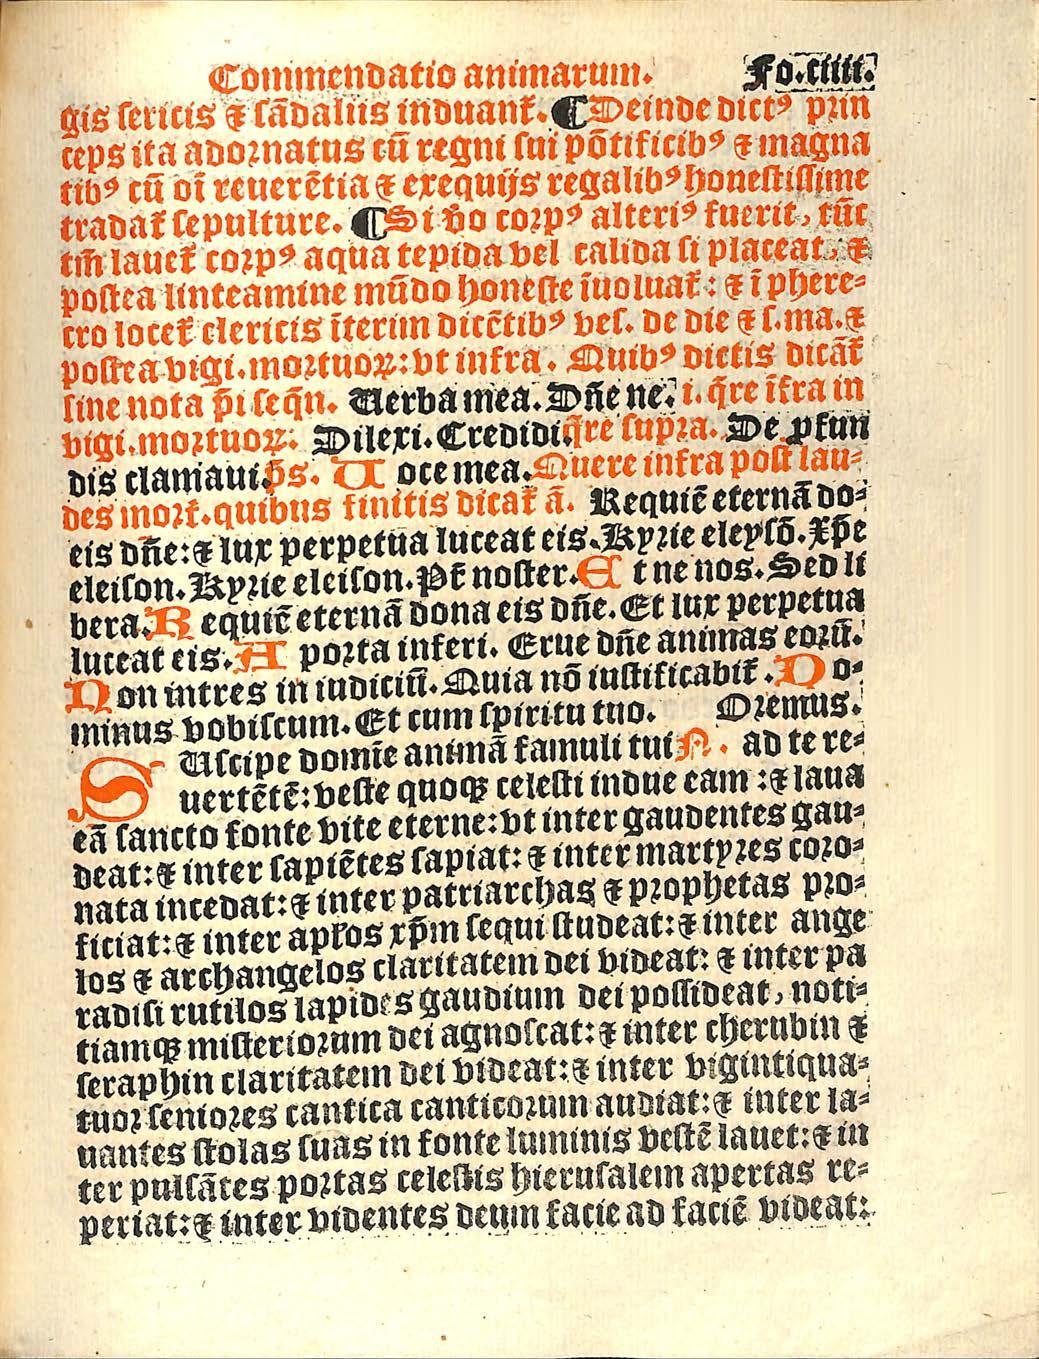 Commendatio animarum. Fo.ciiii.
gis sericis ⁊ sãdaliis induant᷑. ¶ Deinde dictꝰ prin
ceps ita adornatus cũ regni sui põtificibꝰ ⁊ magna
tibꝰ cũ oĩ reuerẽtia ⁊ exequijs regalibꝰ honestissime
tradat᷑ sepulture. ¶ Si v̄o corpꝰ alteriꝰ fuerit, tũc
tm̄ lauet᷑ corpꝰ aqua tepida vel calida si placeat, ⁊
postea linteamine mũdo honeste ĩuoluat᷑: ⁊ ĩ phere-
cro locet᷑ clericis ĩterim dicẽtibꝰ ves. de die ⁊ s.ma.⁊
postea vigi.mortuoꝝ: vt infra. Quibꝰ dictis dicãt᷑
sine nota p̃i seq̃n. Uerba mea. Dñe ne. i. q̃re ĩfra in
vigi.mortuoꝝ: Dilexi. Credidi. q̃re supra. De ꝓfun
dis clamaui. p̃s. U oce mea. Quere infra post lau-
des mort᷑. quibus finitis dicat᷑ ã. Requiẽ eternã do-
eis dñe: ⁊ lux perpetua luceat eis. Kyrie eleysõ. Xp̃e
eleison. Kyrie eleison. Pr̃ noster. E t ne nos. Sed li
bera. R equiẽ eternã dona eis dñe. Et lux perpetua
luceat eis. A porta inferi. Erue dñe animas eorũ.
N on intres in iudiciũ. Quia nõ iustificabit᷑. D o-
minus vobiscum. Et cum spiritu tuo. Oremus.
SUscipe domĩe animã famuli tui N. ad te re-
uertẽtẽ: veste quoqꝫ celesti indue eam: ⁊ laua
eã sancto fonte vite eterne: vt inter gaudentes gau-
deat: ⁊ inter sapiẽtes sapiat: ⁊ inter martyres coro-
nata incedat: ⁊ inter patriarchas ⁊ prophetas pro-
ficiat: ⁊ inter apl̃os xp̃m sequi studeat: ⁊ inter ange
los ⁊ archangelos claritatem dei videat: ⁊ inter pa
radisi rutilos lapides gaudium dei possideat, noti-
tiamqꝫ misteriorum dei agnoscat: ⁊ inter cherubin ⁊
seraphin claritatem dei videat: ⁊ inter vigintiqua-
tuor seniores cantica canticorum audiat: ⁊ inter la-
uantes stolas suas in fonte luminis vestẽ lauet: ⁊ in
ter pulsãtes portas celestis hierusalem apertas re-
periat: ⁊ inter videntes deum facie ad faciẽ videat: